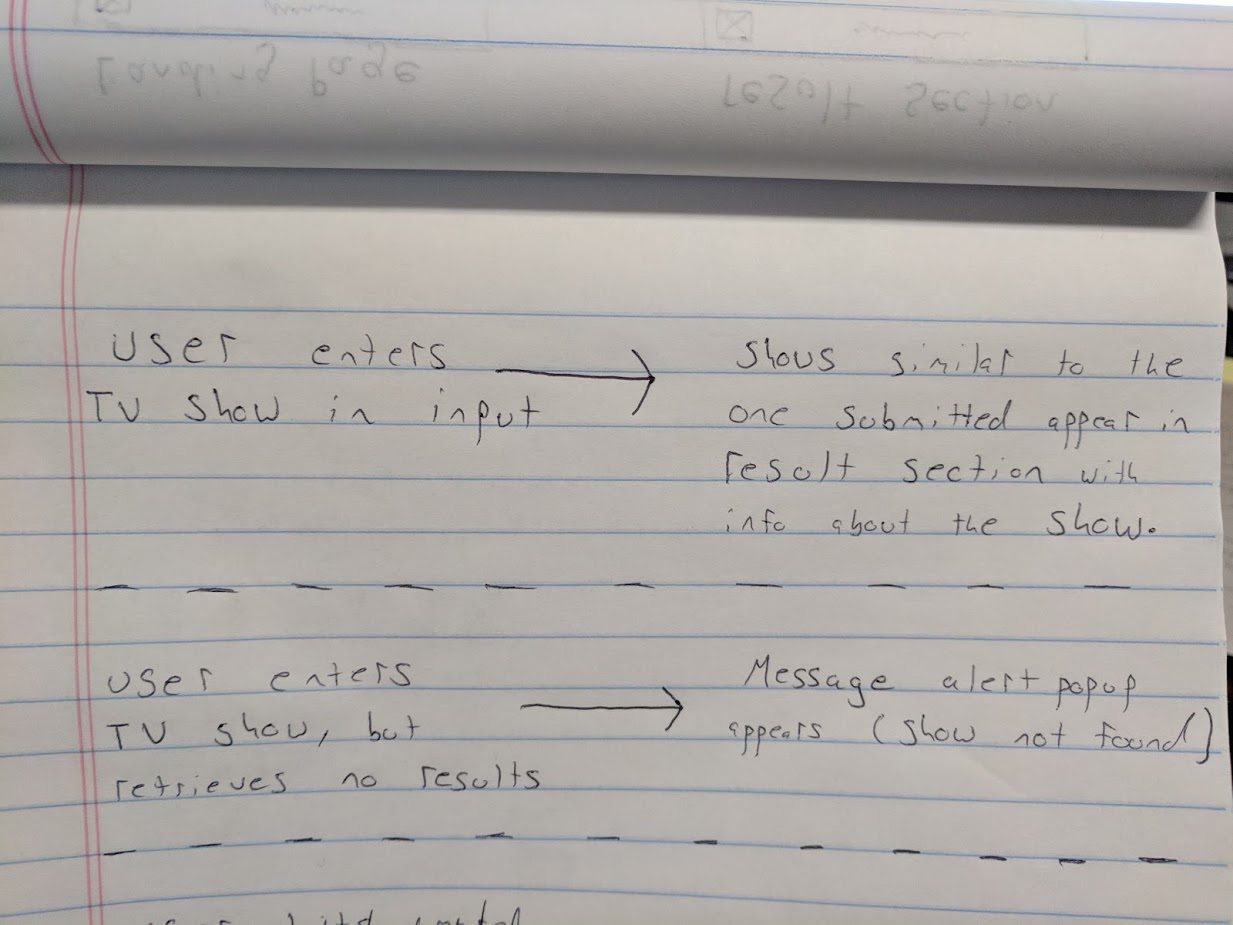 Landing Page
result section
User enters
TV show in input
Shows similar to the
one submitted appear in
result section with
info about the show.
User enters
TV show, but
retrieves no results
Message alert popup
appears (show not found)